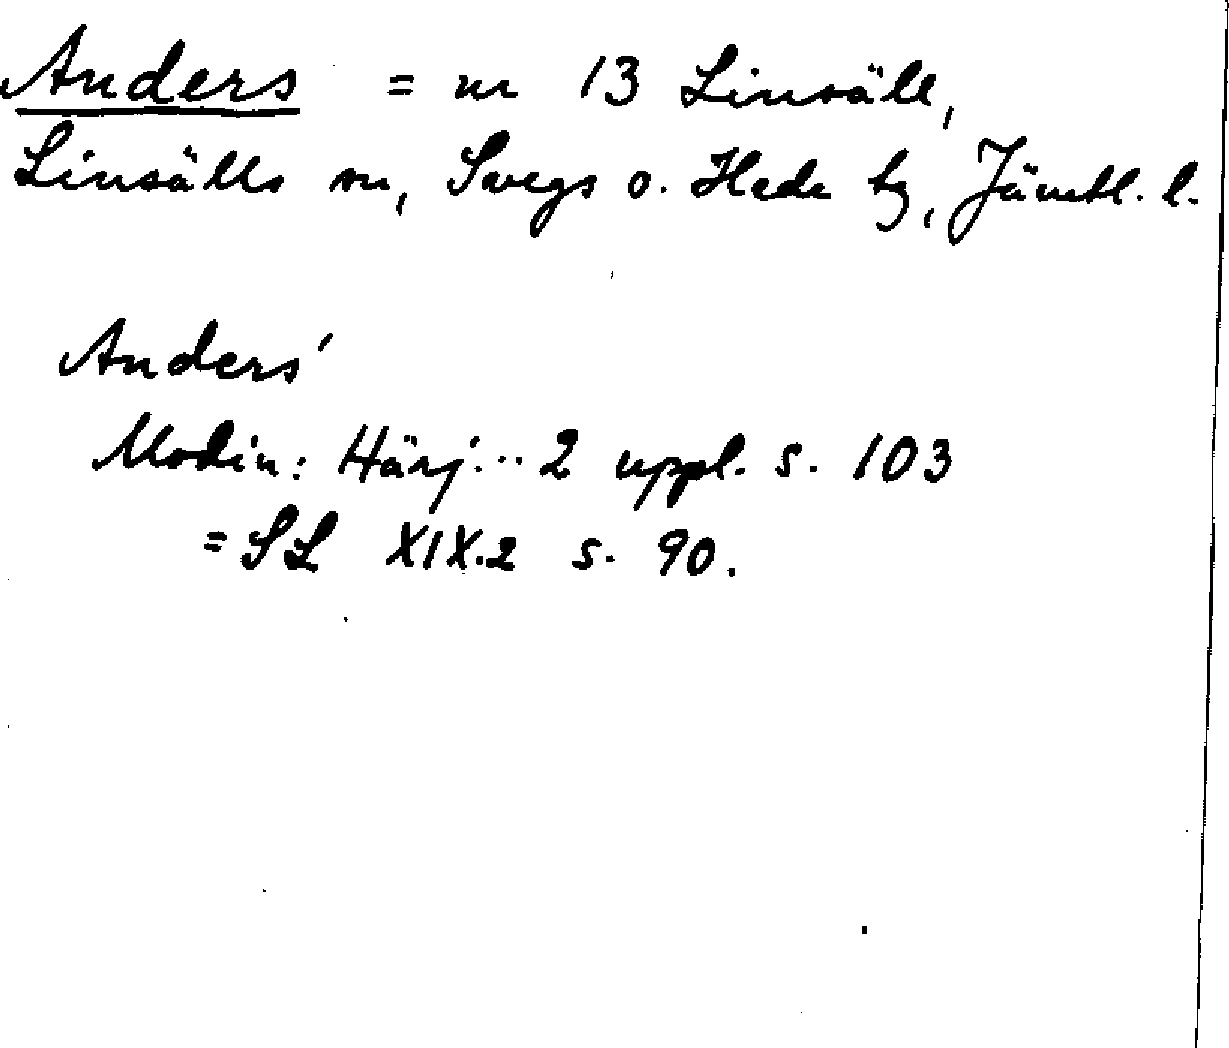 Anders = nr 13 Linsäll,
Linsälls sn, Svegs o. Hede tg, Jämtl. l.
Anders'
Modin: Härj... 2 uppl. s. 103
= SL XIX.2 s. 90.